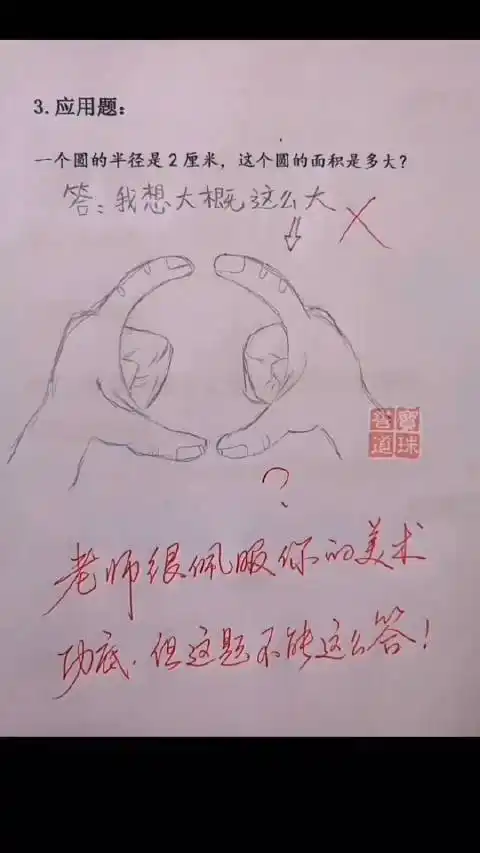 3.应用题：
一个圆的半径是2厘米，这个圆的面积是多大？
答：我想大概这么大
？
老师很佩服你的美术
功底.但这题不能这么答！